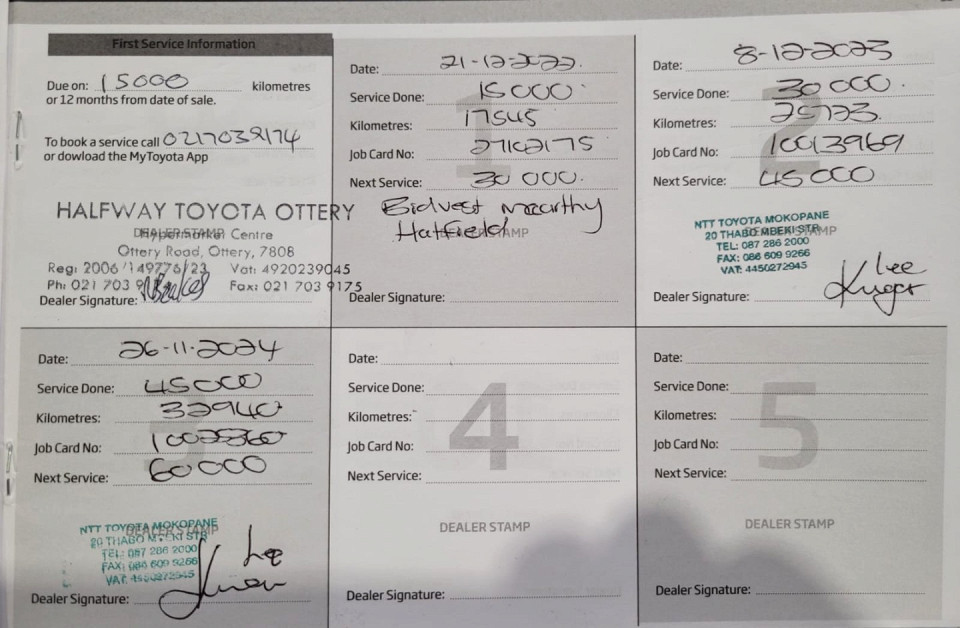 First Service Information
Due on: 15000 kilometres
or 12 months from date of sale.
To book a service call 0217039174
or dowload the MyToyota App
HALFWAY TOYOTA OTTERY
DEALER STAMP
Hypermarket Centre
Ottery Road, Ottery, 7808
Reg: 2006/149776/23 Vat: 4920239045
Ph: 021 703 9 Fax: 021 703 9175
Dealer Signature:
1
Date: 21-12-2022.
Service Done: 15000
Kilometres: 17545
Job Card No: 27102175
Next Service: 30 000.
Bidvest mccarthy
Hatfield
DEALER STAMP
Dealer Signature:
2
Date: 8-12-2023
Service Done: 30 000.
Kilometres:
Job Card No: 10013969
Next Service: 45000
NTT TOYOTA MOKOPANE
20 THABO MBEKI STR
DEALER STAMP
TEL: 087 286 2000
FAX: 086 609 9266
VAT: 4450272945
Lee
Kruger
Dealer Signature:
3
Date: 26-11-2024
Service Done: 45000
Kilometres: 32940
Job Card No:
Next Service: 60000
NTT TOYOTA MOKOPANE
DEALER STAMP
20 THABO MBEKI STR
TEL: 087 286 2000
FAX: 086 609 9266
VAT: 4450272945
Lee
Dealer Signature:
4
Date:
Service Done:
Kilometres:
Job Card No:
Next Service:
DEALER STAMP
Dealer Signature:
5
Date:
Service Done:
Kilometres:
Job Card No:
Next Service:
DEALER STAMP
Dealer Signature: